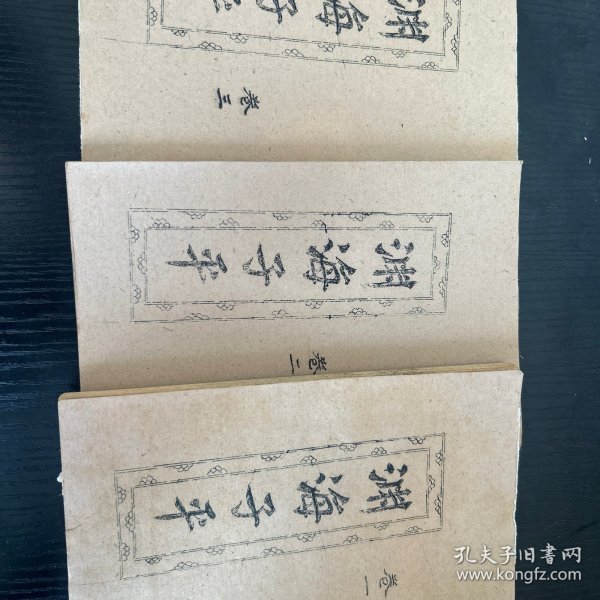 渊海子平
卷三
渊海子平
卷二
渊海子平
卷一
孔夫子旧书网
www.kongfz.com